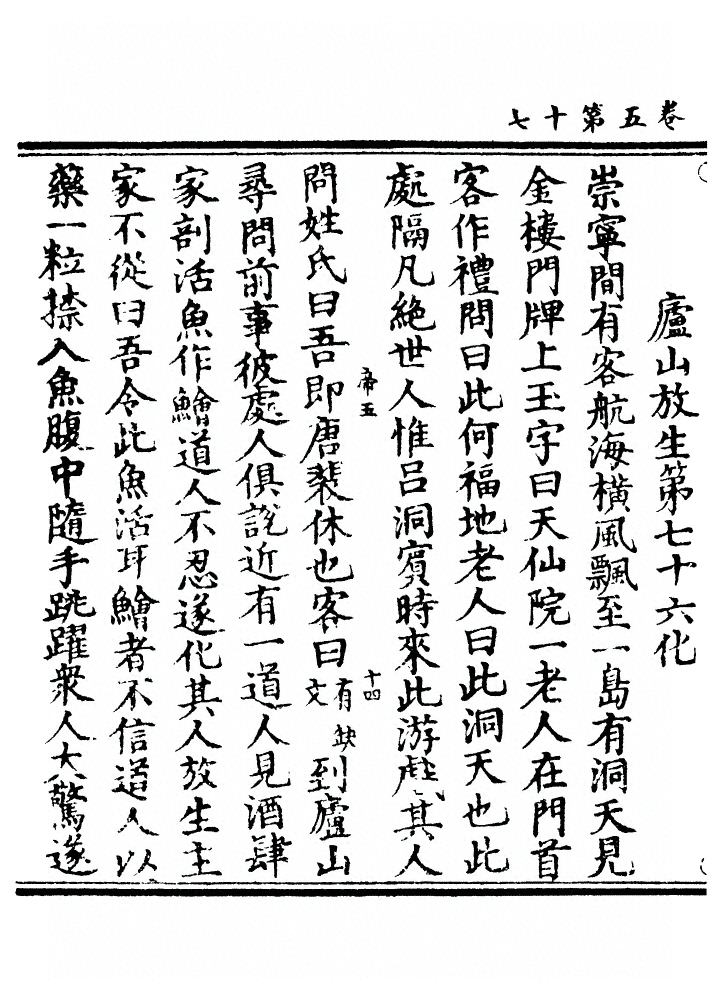 卷五第十七
廬山放生第七十六化
崇寧間有客航海橫風飄至一島有洞天見
金樓門牌上玉字曰天仙院一老人在門首
客作禮問曰此何福地老人曰此洞天也此
處隔凡絶世人惟呂洞賔時來此游戲其人
帝五
問姓氏曰吾即唐裴休也客曰有缺文到廬山
十四
尋問前事彼處人俱説近有一道人見酒肆
家剖活魚作鱠道人不忍遂化其人放生主
家不從曰吾令此魚活耳鱠者不信道人以
藥一粒捺入魚腹中隨手跳躍衆人大驚遂